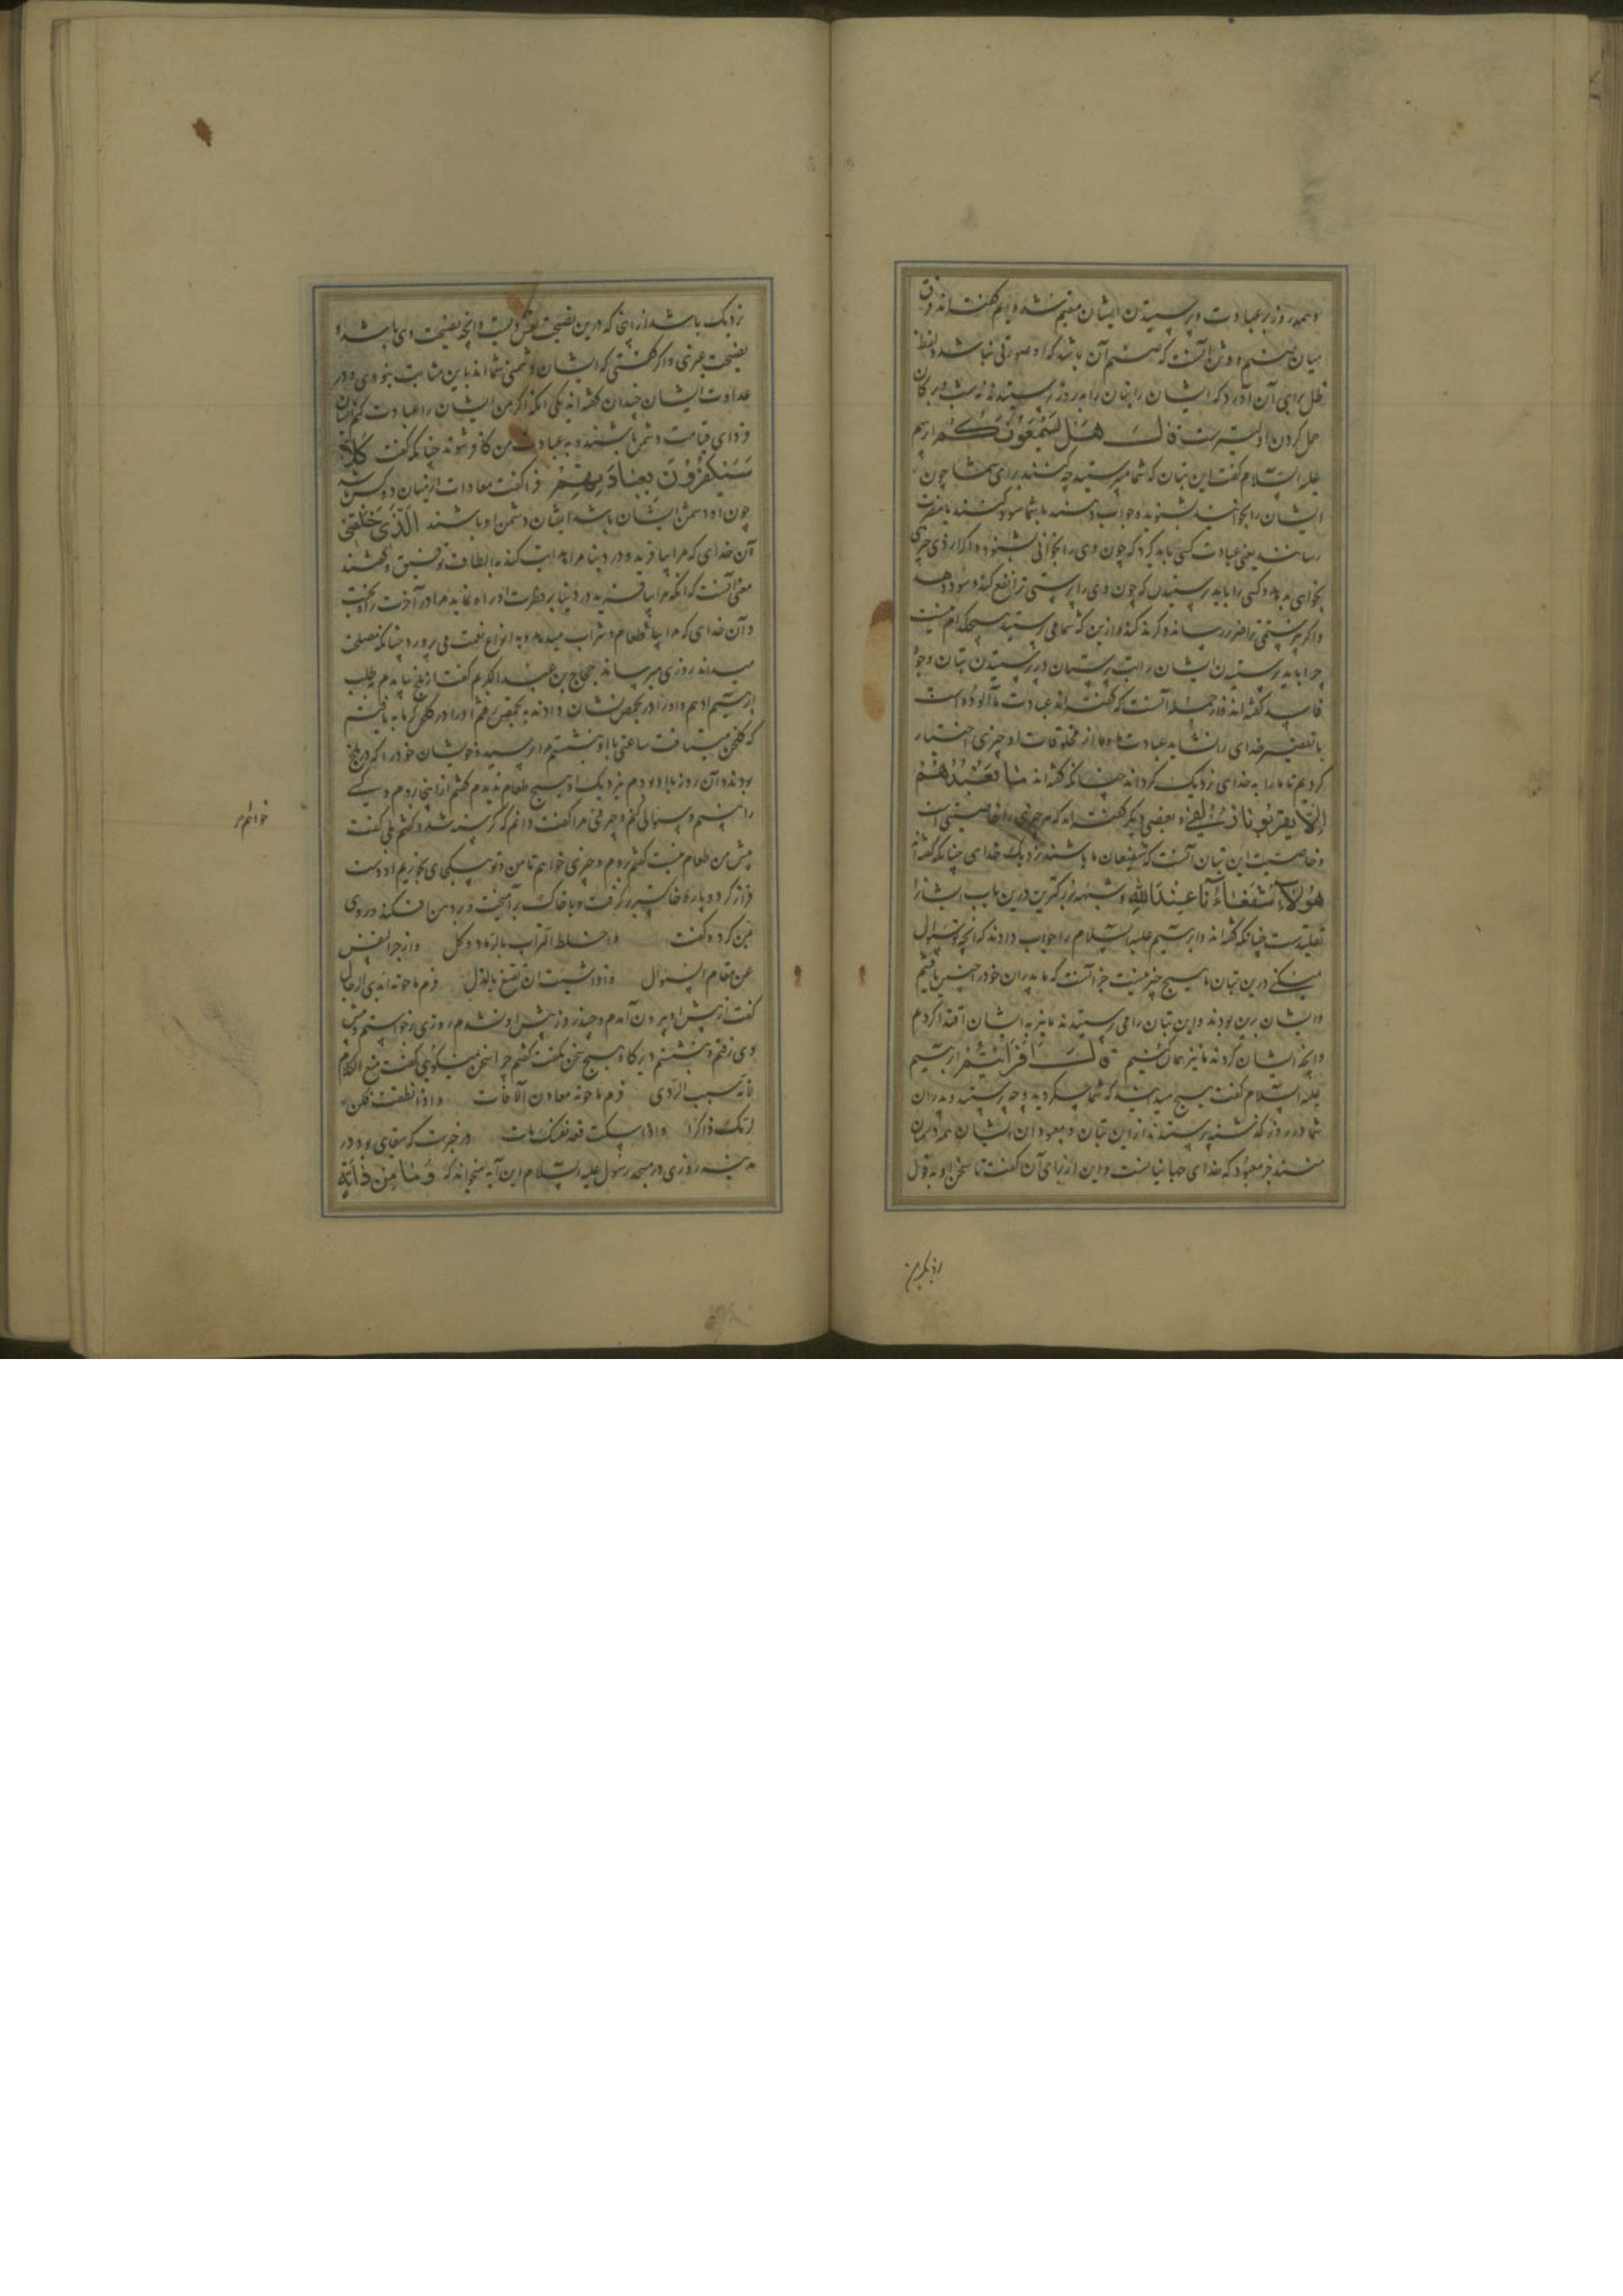 و همه روز بر عبادت و پرستیدن ایشان مقیم شده‌ایم گفته‌اند فرق
میان صنم و وثن آنست که صنم آن باشد که او صورتی باشد و لفظ
ظل برای آن آورد که ایشان بتان را به روز پرستیدندی نه شب و بر کان
حمل کردن اولیترست قال هل یسمعونکم ابرهیم
علیه السلام گفت این بتان که شما میپرستید چه کنند برای شما چون
ایشان را بخوانید بشنوند و جواب دهند یا شما سود کنند یا مضرت
رسانند یعنی عبادت کسی باید کرد که چون وی را بخوانی بشنود و اگر از وی چیزی
بخواهی بدهد و کسی را باید پرستیدن که چون وی را پرستی ترا نفع کند و سود دهد
و اگر نپرستی ترا ضرر رساند و گزند کند و ازین که شما می پرستید هیچکدام نیست
چرا باید پرستیدن ایشان را بت پرستان در پرستیدن بتان وجوه
فاسد گفته اند و از جمله آنست که گفته اند عبادت ما آلوده است
با تقصیر خدای را نشاید عبادت ما و ما از مخلوقات او چیزی اختیار
کردیم تا ما را به خدای نزدیک گرداند چنانکه گفته اند ما نعبدهم
الا لیقربونا زلفی و بعضی دیگر گفته اند که هر چیزی را خاصیتی است
و خاصیت این بتان آنست که شفیعان ما باشند نزدیک خدای چنانکه گفته اند
هؤلاء شفعاءنا عند الله و شبهه بزرگترین درین باب ایشانرا
تقلیدست چنانکه گفته اند و ابرهیم علیه السلام را جواب دادند که آنچه تو سؤال
میکنی درین بتان ما هیچ چیز نیست جز آنست که ما پدران خود را چنین یافتیم
و ایشان برین بودند و این بتان را می پرستیدند ما نیز به ایشان اقتدا کردیم
و آنچه ایشان کردند ما نیز همان کنیم قال افرأیتم ابرهیم
علیه السلام گفت هیچ میدانید که شما چه کردید و چه پرستید و پدران
شما در روزگار گذشته پرستیدند از این بتان و معبودان ایشان همه دشمنان
منند جز معبود که خدای جهانیانست و این از برای آن گفت تا سخن او به قبول
نزدیکتر
نزدیک باشد از آنجا که درین نصیحت نفس ویست و آنچه نصیحت وی باشد و
نصیحت غیری و اگر گفتی که ایشان دشمنی شما اند باین مثابت بنودی و در
عداوت ایشان چندان گفته اند یکی آنکه اگر من ایشان را عبادت کنم ایشان
فردای قیامت دشمن باشند و به عبادت من کافر شوند چنانکه گفت کلا
سیکفرون بعبادتهم فرا گفت معادات از میان دو کس باشد
چون او دشمن ایشان باشد ایشان دشمن او باشند الذی خلقنی
آن خدای که مرا بیافرید و در دنیا مرا هدایت کند به الطاف و توفیق و گفتند
معنی آنست که آنکه مرا بیافرید در دنیا بر فطرت او راه نماید مرا در آخرت راه بهشت
و آن خدای که مرا طعام و شراب میدهد و به انواع نعمت می پرورد چنانکه مصلحت
میداند روزی میرساند حجاج بن عبد الکریم گفت از بلخ بیامدم به طلب
ابرهیم ادهم و او را در حمص نشان دادند به حمص رفتم او را در گلخن گرمابه یافتم
که گلخن میتافت ساعتی با او بنشستم مرا پرسید و خویشان خود را که در بلخ
بودند و آن روز با او بودم نزدیک او هیچ طعام ندیدم گفتم از اینجا بروم و کسی
را بینم و سؤالی کنم و چیزی مرا گفت دانم که گرسنه شدی گفتم بلی گفت
پیش من طعام نیست گفتم بروم و چیزی خواهم تا من و تو به یکجای بخوریم او دست
فراز کرد و پاره خاکستر برگرفت و با خاک برآمیخت و در دهن افکند و روی
بمن کرد و گفت واخلط التراب بالرماد و کل وازجر النفس
عن مقام السؤال واذا شئت ان تقنع بالذل فرم ما حوته ایدی الرجال
گفت از پیش او بیرون آمدم و چند روز پیش او نشدم روزی برخواستم و پیش
وی رفتم و بنشستم دیرگاه هیچ سخن نگفت گفتم چرا سخن نمیگویی گفت منع الکلام
لانه سبب الردی فرم ما حوته معادن الآفات واذا نطقت فکن
لربک ذاکرا واذا سکت فعد نفسک مات در خبرست که سقایی بود در
مدینه روزی در مسجد رسول علیه السلام این آیه میخواند که و ما من دابة
خواهم